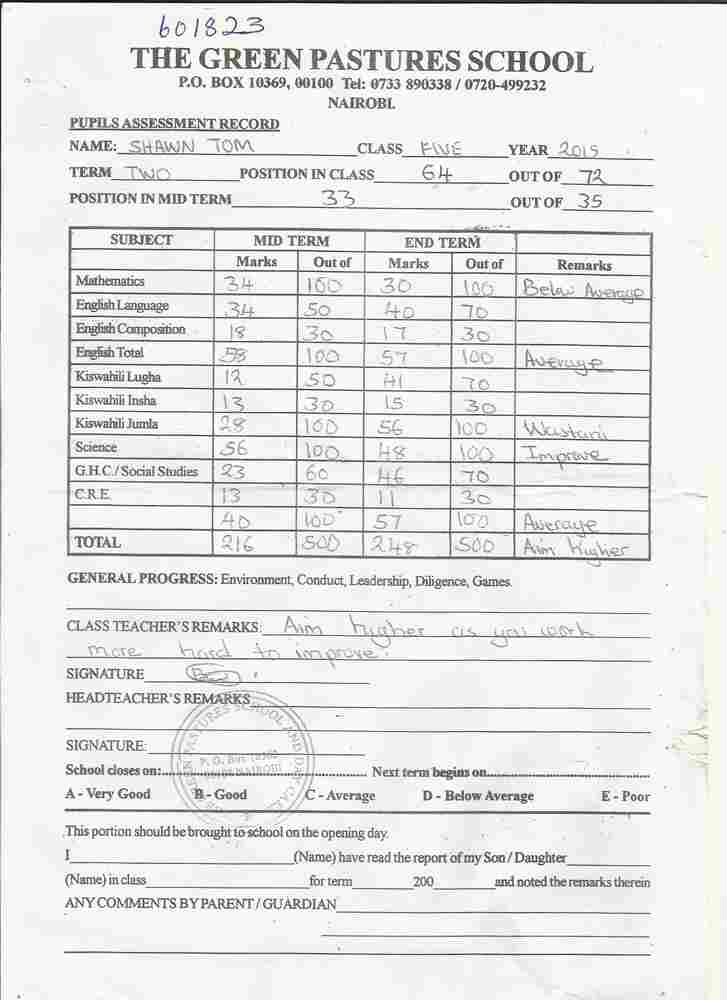 601823
THE GREEN PASTURES SCHOOL
P.O. BOX 10369, 00100 Tel: 0733 890338 / 0720-499232
NAIROBI.
PUPILS ASSESSMENT RECORD
NAME: SHAWN TOM CLASS FIVE YEAR 2015
TERM TWO POSITION IN CLASS 64 OUT OF 72
POSITION IN MID TERM 33 OUT OF 35
SUBJECT MID TERM END TERM
Marks Out of Marks Out of Remarks
Mathematics 34 100 30 100 Below Average
English Language 34 50 40 70
English Composition 18 30 17 30
English Total 58 100 57 100 Average
Kiswahili Lugha 12 50 41 70
Kiswahili Insha 13 30 15 30
Kiswahili Jumla 28 100 56 100 Wastani
Science 56 100 48 100 Improve
G.H.C./Social Studies 23 60 46 70
C.R.E. 13 30 11 30
40 100 57 100 Average
TOTAL 216 500 248 500 Aim Higher
GENERAL PROGRESS: Environment, Conduct, Leadership, Diligence, Games.
CLASS TEACHER'S REMARKS: Aim higher as you work
more hard to improve.
SIGNATURE
HEADTEACHER'S REMARKS
SIGNATURE:
School closes on:.... Next term begins on....
A - Very Good B - Good C - Average D - Below Average E - Poor
This portion should be brought to school on the opening day.
I (Name) have read the report of my Son / Daughter
(Name) in class for term 200 and noted the remarks therein
ANY COMMENTS BY PARENT / GUARDIAN